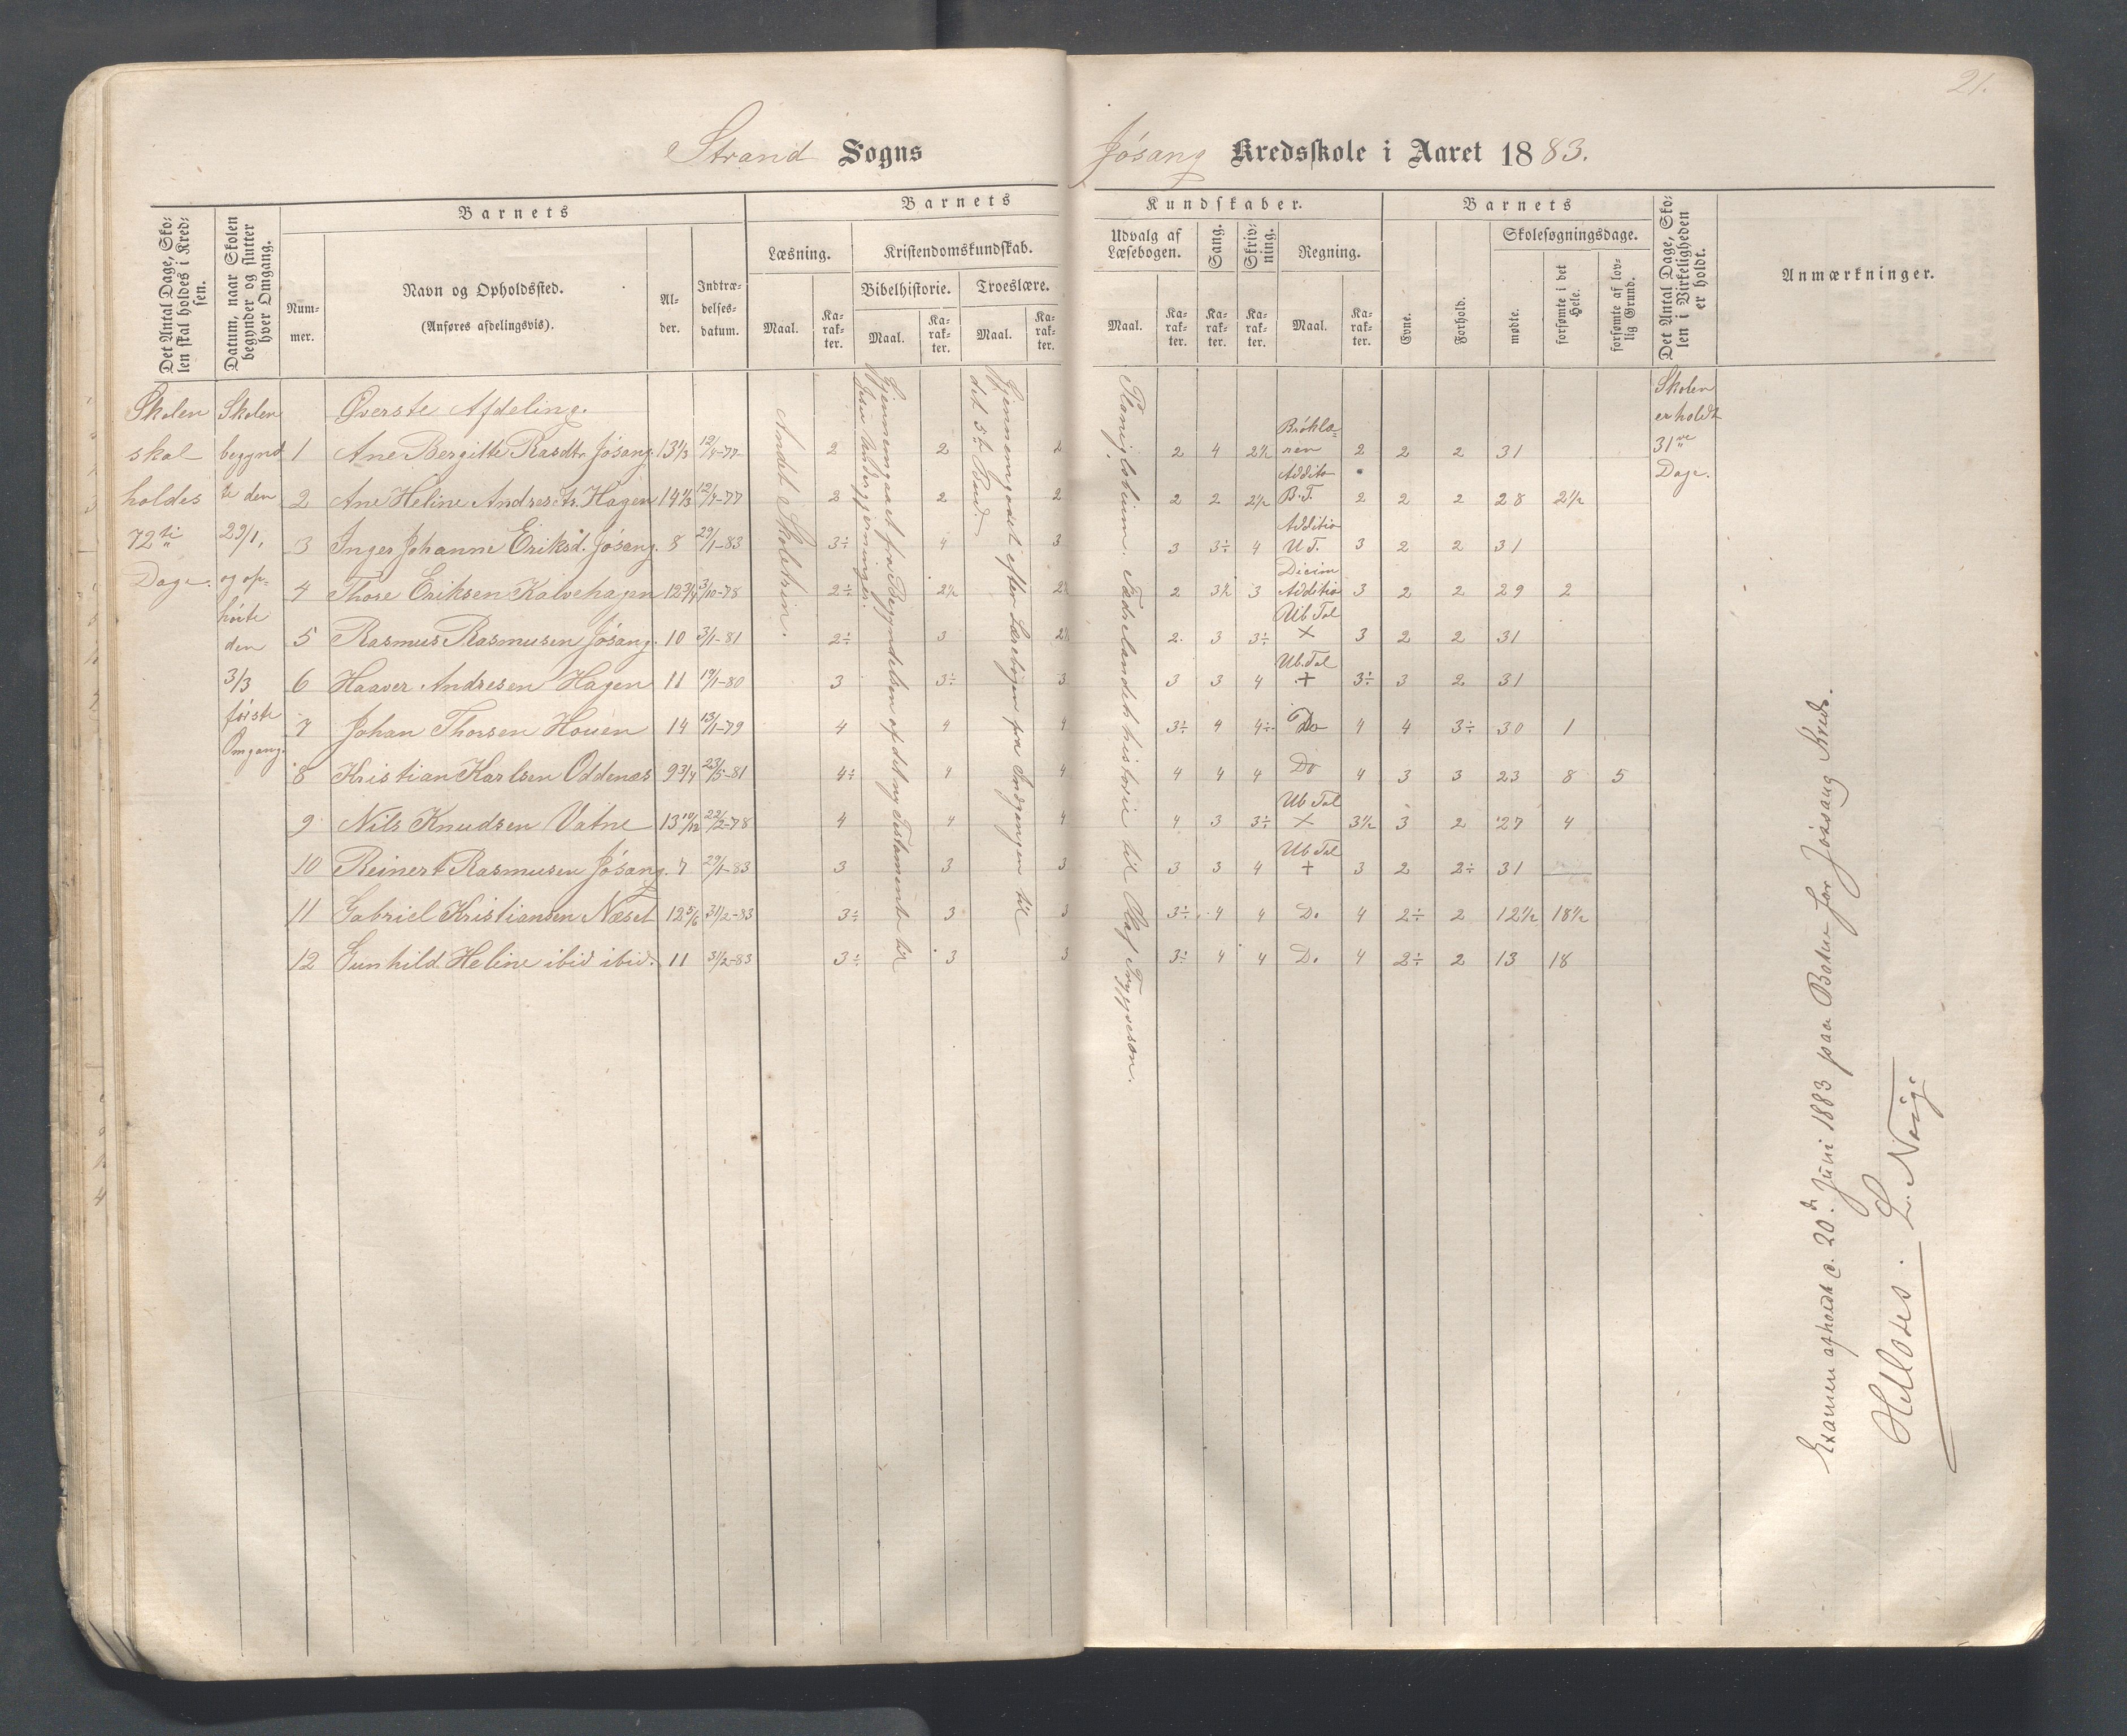 21.
Strand Sogns Jósang Kredsskole i Aaret 1883.
Det Antal Dage, Skolen skal holdes i Kredsen.
Datum, naar Skolen begynder og slutter hver Omgang.
Barnets
Nummer.
Navn og Opholdssted.
(Anføres afdelingsvis).
Alder.
Indtrædelsesdatum.
Barnets Kundskaber.
Læsning.
Maal.
Karakter.
Kristendomskundskab.
Bibelhistorie.
Maal.
Karakter.
Troeslære.
Maal.
Karakter.
Udvalg af Læsebogen.
Maal.
Karakter.
Sang.
Karakter.
Skrivning.
Karakter.
Regning.
Maal.
Karakter.
Barnets
Evne.
Forhold.
Skolesøgningsdage.
mødte.
forsømte i det Hele.
forsømte af lovlig Grund.
Det Antal Dage, Skolen i Virkeligheden er holdt.
Anmærkninger.
Skolen
skal
holdes
72 ti
Dage.
Skolen
begynd
te den
29/1,
og op-
hørte
den
3/3
første
Omgang.
Øverste Afdeling.
1 Ane Bergitte Rasdtr. Jósang. 13 1/3 12/4-77 2 2 2 2 4 2 1/2 Brøkla- ren 2 2 2 31
2 Ane Heline Andresdtr. Hagen 14 1/2 12/4-77 2 2 2 2 2 2 1/2 Additio B.T. 2 2 2 28 2 1/2
3 Inger Johanne Eriksd. Jósang. 8 29/1-83 3÷ 4 3 3 3÷ 4 Additio U.T. 3 2 2 31
4 Thore Eriksen Kalvehagen 12 3/4 3/10-78 2÷ 2 1/2 2 1/2 2 3 1/2 3 Decim Additio 3 2 2 29 2
5 Rasmus Rasmusen Jósang. 10 3/1-81 2÷ 3 2 1/2 2. 3 3÷ Ub Tal × 3 2 2 31
6 Haaver Andresen Hagen 11 19/1-80 3 3÷ 3 3 3 4 Ub. Tal + 3÷ 3 2 31
7 Johan Thorsen Houen 14 13/1-79 4 4 4 3÷ 4 4÷ Do 4 4 3÷ 30 1
8 Kristian Karlsen Oddenæs 9 3/4 23/5-81 4÷ 4 4 4 4 4 Do 4 3 3 23 8 5
9 Nils Knudsen Vatne 13 10/12 22/2-78 4 4 4 4 3 3÷ Ub Tal × 3 1/2 3 2 27 4
10 Reinert Rasmusen Jósang. 7 29/1-83 3 3 3 3 3 4 Ub Tal + 3 2 2÷ 31
11 Gabriel Kristiansen Næset 12 5/6 31/2-83 3÷ 3 3 3÷ 4 4 Do 4 2÷ 2 12 1/2 18 1/2
12 Gunhild Heline ibid ibid. 11 31/2-83 3÷ 3 3 3÷ 4 4 Do 4 2÷ 2 13 18
Andet Skoletrin.
Gjennemgaaet fra Begyndelsen af det ny Testament til
Jesu Undergjerninger.
Gjennemgaaet efter Lærebogen fra Indgangen til
det 5te Bud.
Planigloberum. Fædrelandets historie til Olaf Trygvesøn.
Skolen
er holdt
31 ve
Dage.
Examen afholdt d. 20de Juni 1883 paa Bakne for Jøssang Kreds.
Helloses. L. Norge